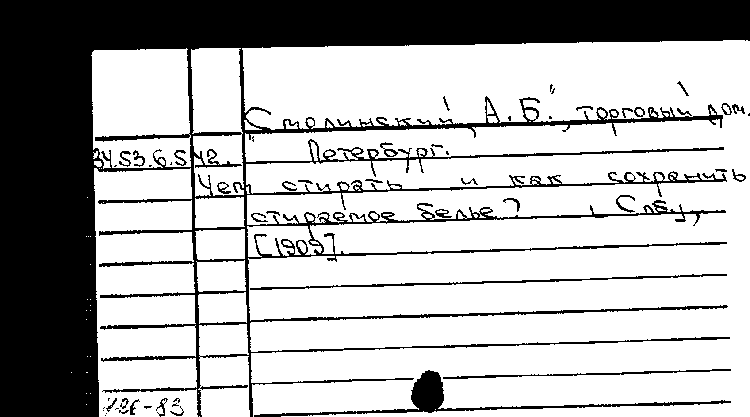 "Смолинский, А. Б.", торговый дом.
34.53.6.542. Петербург.
Чем стирать и как сохранить
стираемое белье? [Спб],
[1909].
12е-83